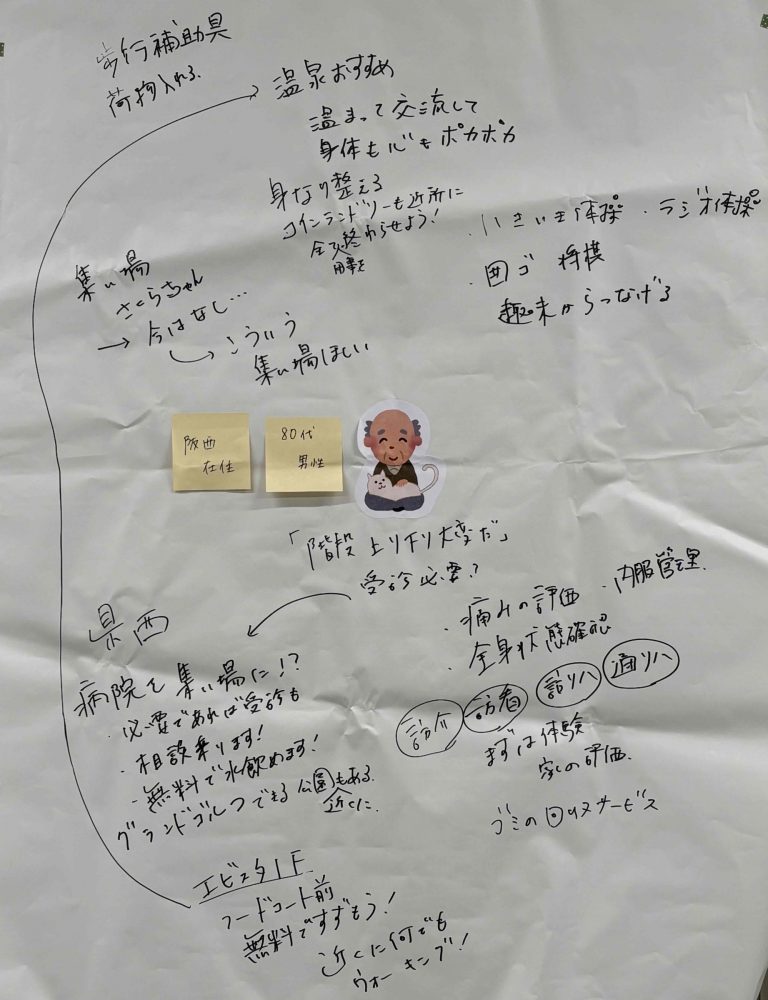 歩行補助具
荷物入れる
温泉おすすめ
温まって交流して
身体も心もポカポカ
身なり整える
コインランドリーも近所に
全て終わらせよう!
用事を
・いきいき体操 ・ラジオ体操
・囲ゴ 将棋
趣味からつなげる
集い場
さくらちゃん
→ 今はなし…
こういう
集い場ほしい
阪西
在住
80代
男性
「階段 上り下り大変だ」
受診必要?
・痛みの評価 ・内服管理
・全身状態確認
訪介 訪看 訪リハ 通リハ
まずは体験
家の評価
ゴミの回収サービス
県西
病院を集い場に!?
・必要であれば受診も
・相談乗ります!
・無料で水飲めます!
グランドゴルフできる公園もある
近くに
エビスタ1F
フードコート前
無料ですずもう!
近くに何でも
ウォーキング!